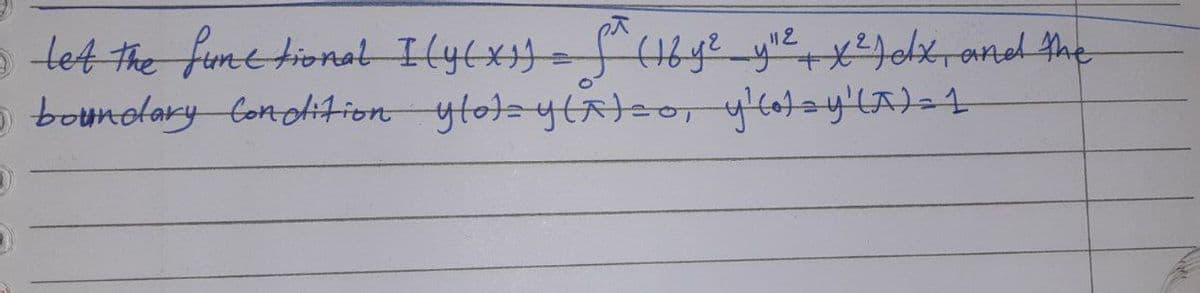 let the functional I(y(x)) = ∫₀^π (16y² - y''² + x²)dx, and the
boundary Condition y(0) = y(π) = 0, y'(0) = y'(π) = 1